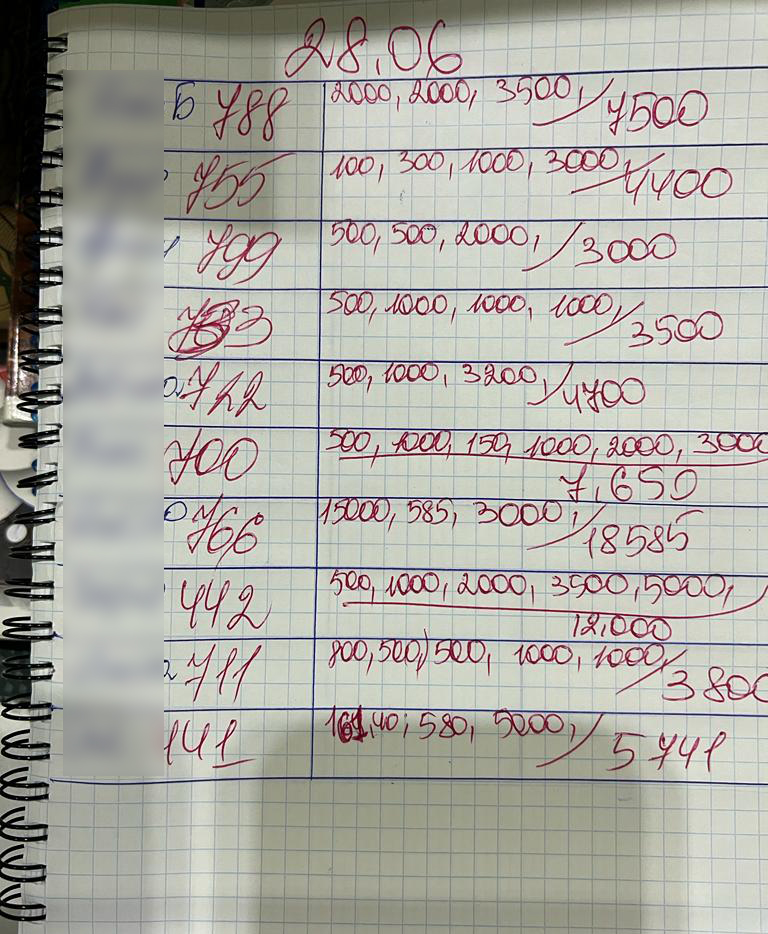 28.06
Б 788 2000, 2000, 3500, / 7500
755 100, 300, 1000, 3000, / 4400
799 500, 500, 2000, / 3000
3 500, 1000, 1000, 1000, / 3500
722 500, 1000, 3200, / 4700
700 500, 1000, 150, 1000, 2000, 3000
7.650
766 15000, 585, 3000, / 18585
442 500, 1000, 2000, 3500, 5000,
12.000
711 800, 500, 500, 1000, 1000, / 3800
141 161,40; 580, 5000, / 5741